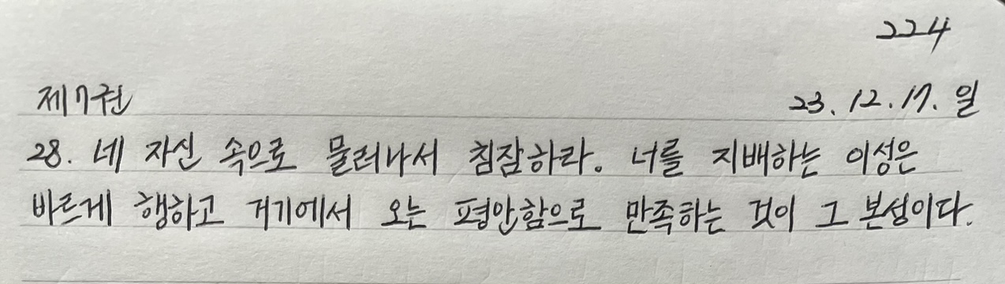 224
제7권 23.12.17. 일
28. 네 자신 속으로 물러나서 침잠하라. 너를 지배하는 이성은
바르게 행하고 거기에서 오는 평안함으로 만족하는 것이 그 본성이다.